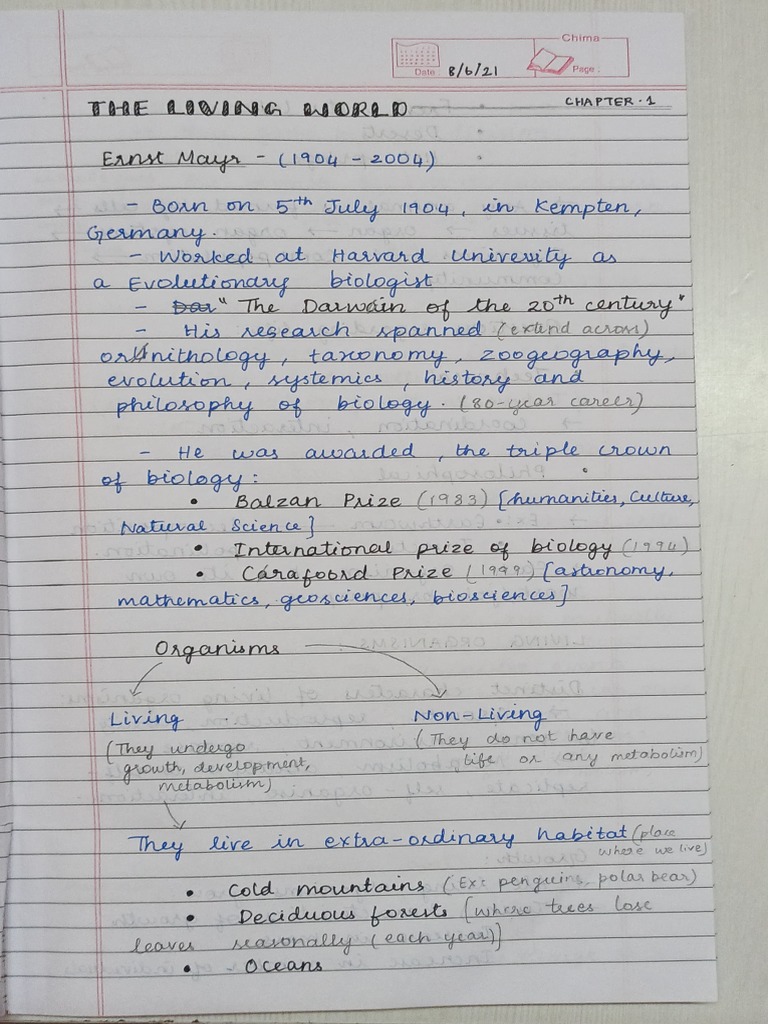 Chima
Date 8/6/21 Page:
THE LIVING WORLD CHAPTER · 1
Ernst Mayr - (1904 - 2004)
- Born on 5th July 1904, in Kempten,
Germany.
- Worked at Harvard University as
a Evolutionary biologist
- Dar "The Darwain of the 20th century"
- His research spanned (extend across)
ornithology, taxonomy, zoogeography,
evolution, systemics, history and
philosophy of biology. (80-year career)
- He was awarded, the triple crown
of biology:
• Balzan Prize (1983) [humanities, Culture,
Natural Science]
• International prize of biology (1994)
• Carafoord Prize (1999) [astronomy,
mathematics, geosciences, biosciences]
Organisms
Living Non-Living
(They undergo (They do not have
growth, development, life or any metabolism)
metabolism)
They live in extra-ordinary habitat (place
where we live)
• Cold mountains (Ex: penguins, polar bear)
• Deciduous forests [where trees lose
leaves seasonally (each year)]
• Oceans